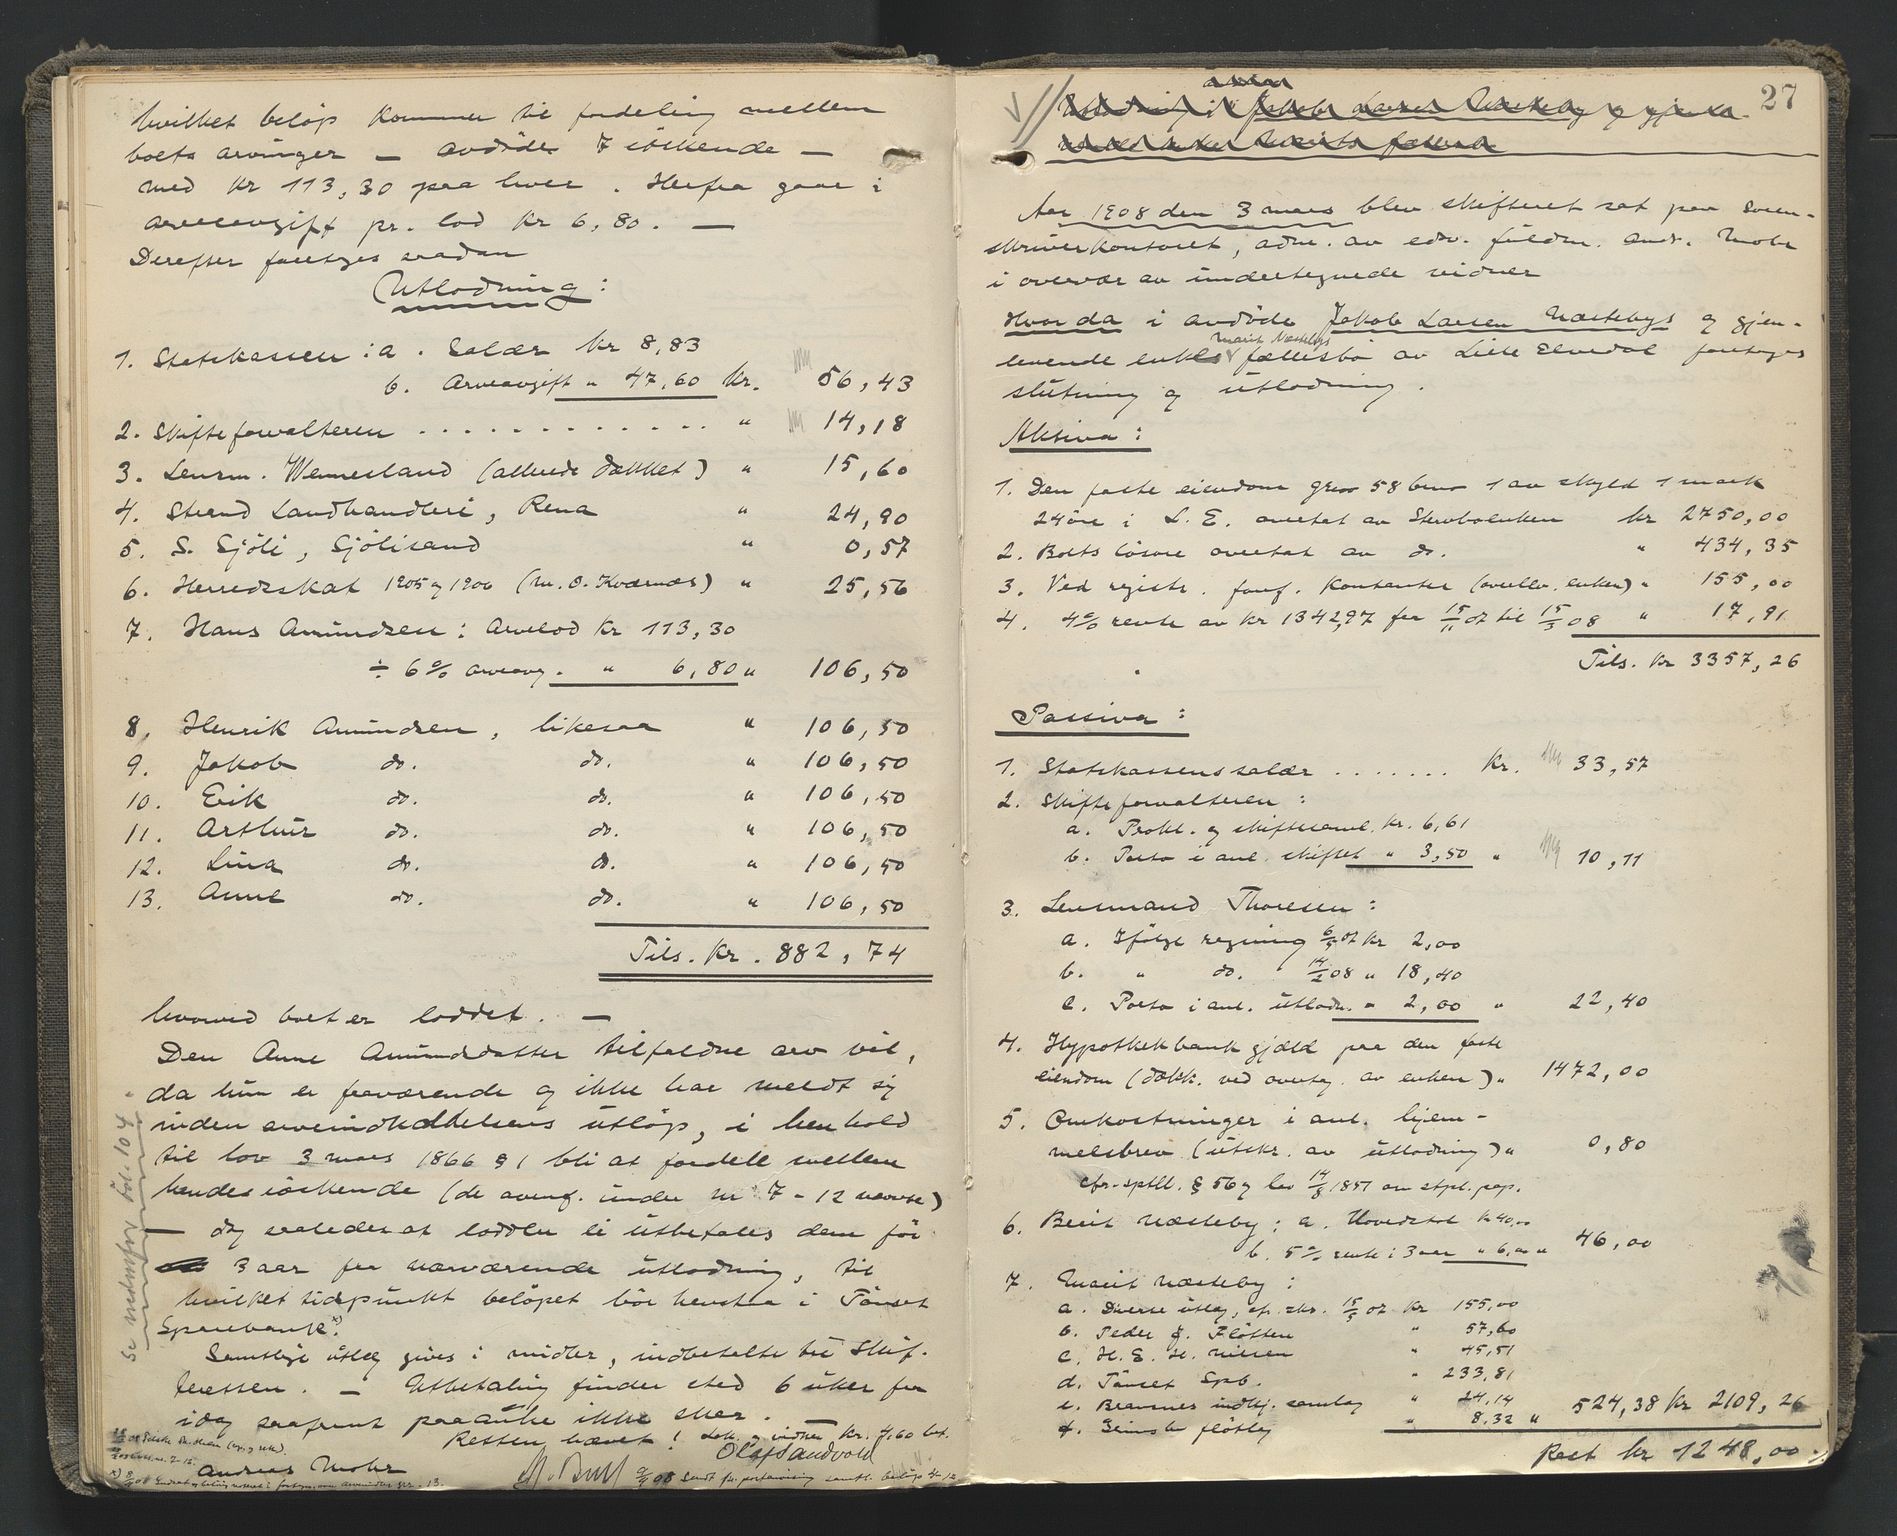 hvilket beløp kommer til fordeling mellem
boets arvinger — avdödes 7 söskende —
med kr 113,30 paa hver. Herfra gaar i
arveavgift pr. lod kr 6,80. —
Derefter foretages saadan
Utlodning:
1. Statskassen: a. Salær kr 8,83
b. Arveavgift " 47,60 kr. 56,43
2. Skifteforvalteren . . . . . . . . . . . . " 14,18
3. Lensm. Wennesland (allerede dækket) " 15,60
4. Strand Landhandleri, Rena " 24,90
5. S. Sjöli, Sjölisand " 0,57
6. Herredsskat 1905 og 1906 (m. O. Kværnæs) " 25,56
7. Hans Amundsen: Arvelod kr 113,30
÷ 6 % arveavg. " 6,80 " 106,50
8. Henrik Amundsen, likesaa " 106,50
9. Jakob do. do. " 106,50
10. Erik do. do. " 106,50
11. Arthur do. do. " 106,50
12. Lina do. do. " 106,50
13. Anne do. do. " 106,50
Tils. kr. 882,74
hvorved boet er loddet. —
Den Anne Amundsdatter tilfaldne arv vil,
da hun er fraværende og ikke har meldt sig
inden arveindkaldelsens utløp, i henhold
til lov 3 mars 1866 § 1 bli at fordele mellem
hendes söskende (de ovenf. under nr 7-12 nævnte)
— dog saaledes at lodden ei utbetales dem før
3 aar fra nærværende utlodning, til
hvilket tidspunkt beløpet bør henstaa i Tönset
Sparebank x).
Samtlige utlæg gives i midler, indbetalte til Skif-
teretten. — Utbetaling finder sted 6 uker fra
idag saafremt paaanke ikke sker.
Retten hævet! Lok. og vidner kr. 4,60 bet.
Olaf Sandvold
Andreas Mohr
Se nedenfor fol. 104.
27
Aar 1908 den 3 mars blev skifteret sat paa Soren-
skriverkontoret, adm. av edsv. fuldm. Andr. Mohr
i overvær av undertegnede vidner
Hvorda i avdöde Jakob Larsen Næstebys og gjen-
Marit Næstebys
levende enkes fællesbo av Lille Elvedal foretages
slutning og utlodning.
Aktiva:
1. Den faste eiendom gno 58 bno 1 av skyld 1 mark
24 öre i L. E. overtat av Stervboenken kr 2750,00
2. Boets løsøre overtat av do. " 434,35
3. Ved registr. foref. kontanter (overlev. enken) " 155,00
4. 4 % rente av kr 1342,97 fra 15/11 07 til 15/3 08 " 17,91
Tils. kr 3357,26
Passiva:
1. Statskassens salær . . . . . . . kr. 33,57
2. Skifteforvalteren:
a. Prokl. og skiftesaml. kr. 6,61
b. Porto i anl. skiftet " 3,50 " 10,11
3. Lensmand Thoresen:
a. Ifölge regning 6/5 07 kr 2,00
b. " do. 14/2 08 " 18,40
c. Porto i anl. utlodn. " 2,00 " 22,40
4. Hypothekbankgjæld paa den faste
eiendom (dækk. ved overtag. av enken) " 1472,00
5. Omkostninger i anl. hjem-
melsbrev (utskr. av utlodning) " 0,80
cfr. sptll. § 56 og lov 14/8 1851 om stpl. pap.
6. Berit Næsteby: a. Hovedstol kr 40,00
b. 5 % rente i 3 aar " 6,00 " 46,00
7. Marit Næsteby:
a. Diverse utlæg, cf. skr. 15/5 07 kr 155,00
b. Peder J. Flötten " 57,60
c. H. E. H. Nilsen " 45,51
d. Tönset Spb. " 233,81
e. indkj. samlag " 24,14
f. Grimsbu flötlag " 8,32 " 524,38 kr 2109,26
Rest kr 1248,00.